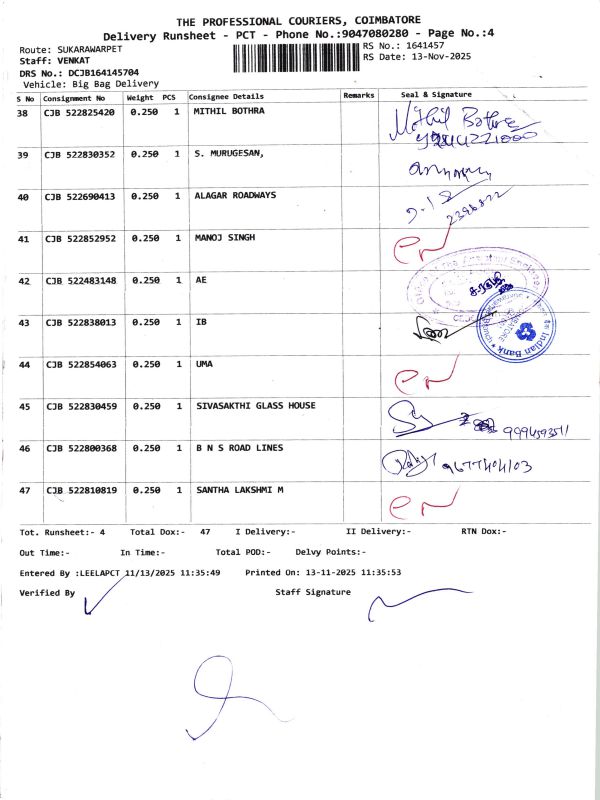 THE PROFESSIONAL COURIERS, COIMBATORE
Delivery Runsheet - PCT - Phone No.:9047080280 - Page No.:4
Route: SUKARAWARPET
RS No.: 1641457
Staff: VENKAT
RS Date: 13-Nov-2025
DRS No.: DCJB164145704
Vehicle: Big Bag Delivery
S No Consignment No Weight PCS Consignee Details Remarks Seal & Signature
38 CJB 522825420 0.250 1 MITHIL BOTHRA Mithil Bothra
39 CJB 522830352 0.250 1 S. MURUGESAN,
40 CJB 522690413 0.250 1 ALAGAR ROADWAYS
41 CJB 522852952 0.250 1 MANOJ SINGH
42 CJB 522483148 0.250 1 AE
43 CJB 522838013 0.250 1 IB
Indian Bank
44 CJB 522854063 0.250 1 UMA
45 CJB 522830459 0.250 1 SIVASAKTHI GLASS HOUSE
46 CJB 522800368 0.250 1 B N S ROAD LINES 9677404103
47 CJB 522810819 0.250 1 SANTHA LAKSHMI M
Tot. Runsheet:- 4 Total Dox:- 47 I Delivery:- II Delivery:- RTN Dox:-
Out Time:- In Time:- Total POD:- Delvy Points:-
Entered By :LEELAPCT 11/13/2025 11:35:49 Printed On: 13-11-2025 11:35:53
Verified By Staff Signature